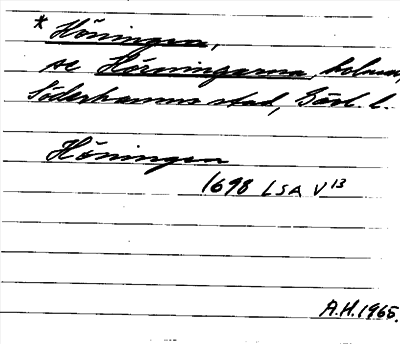 * Höningen,
se Hörningarna, holmar,
Söderhamns stad, Gävl. l.
Höningen
1698 LSA V 13
A.H. 1965.